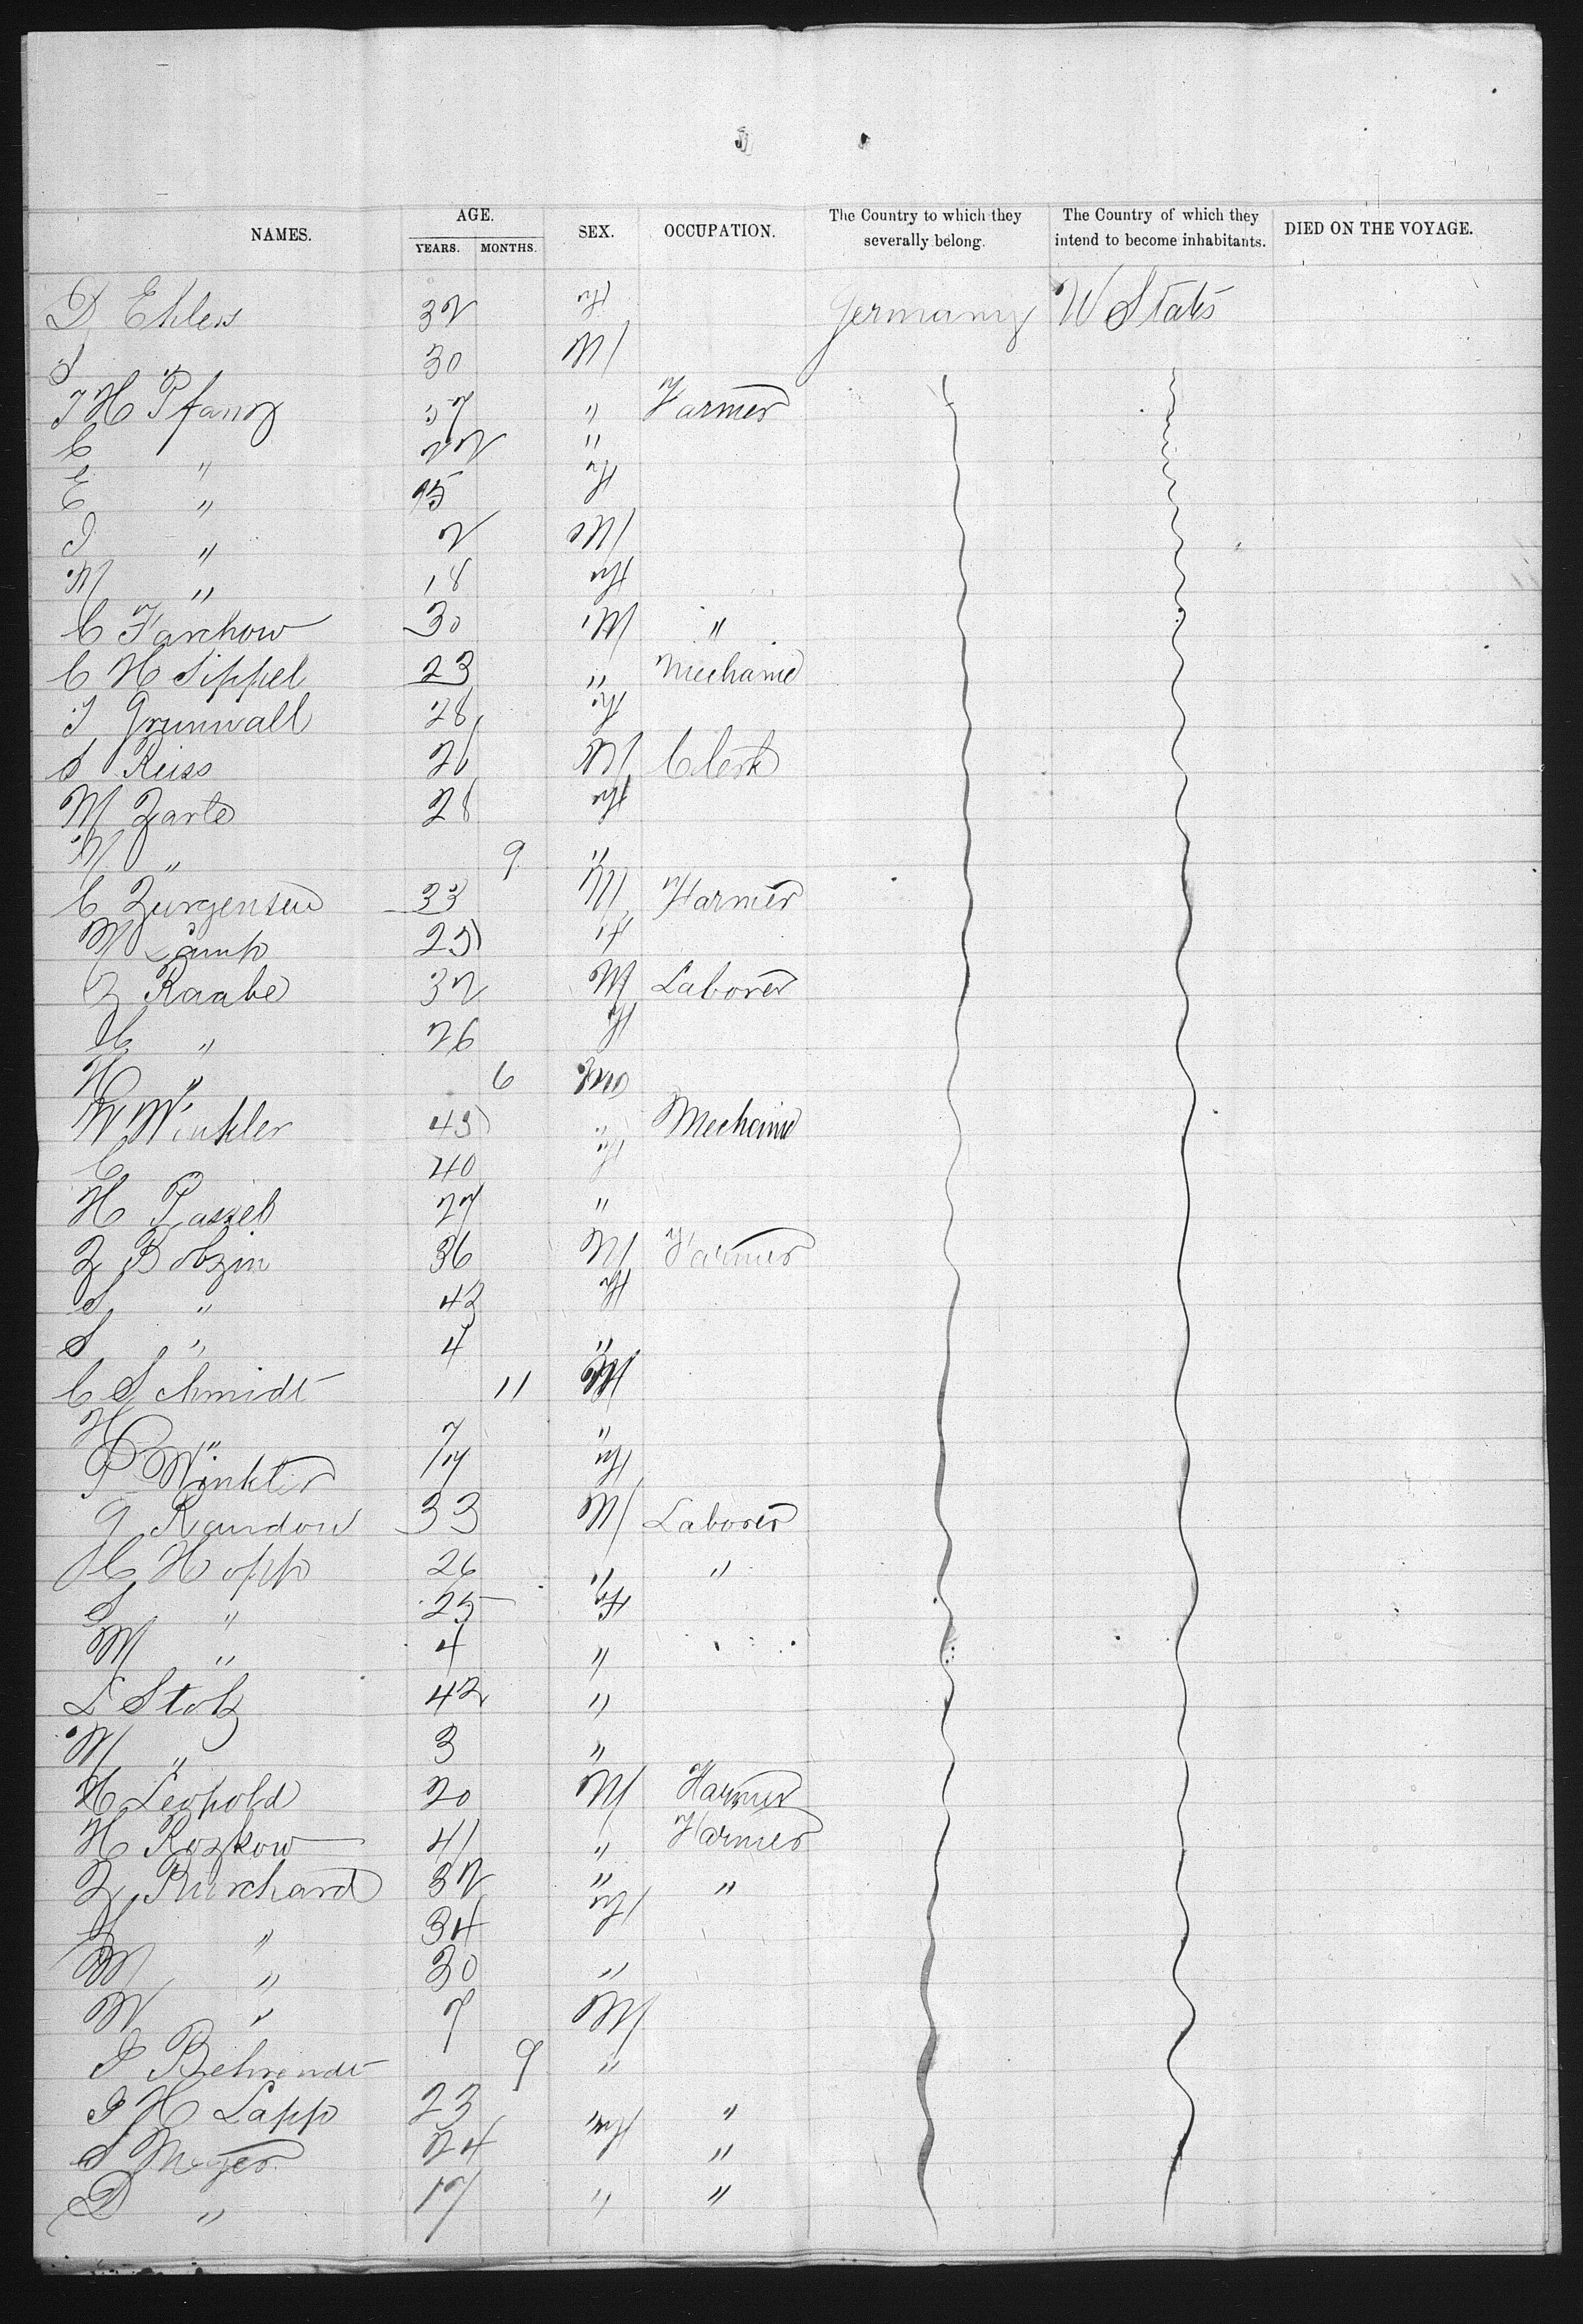 NAMES. AGE. YEARS. MONTHS. SEX. OCCUPATION. The Country to which they severally belong. The Country of which they intend to become inhabitants. DIED ON THE VOYAGE.
D Ehlers 32 F Germany U States
S 30 M
J H Pfanz 37 " Farmer
C " 22 "
E " 15 F
J " 2 M
M " 18 F
C Farchow 30 M "
C H Sippel 23 " Mechanic
J Grunwall 28 F
S Reiss 26 M Clerk
M Zarte 28 F
M " 9 "
C Jurgensen 33 M Farmer
M Camp 25 F
J Raabe 32 M Laborer
C " 26 F
H " 6
W Winkler 45 " Mechanic
C 40 F
H Passeb 27 "
J Bobzin 36 M Farmer
S " 42 F
S " 4 "
C Schmidt 11 M
H " 7 "
P Winkler 17 F
G Randow 33 M Laborer
C Hopp 26 " "
S " 25 F
M " 4 "
L Stolz 42 "
M " 3 "
H Leopold 20 M Farmer
H Rozkow 41 " Farmer
J Burchard 32 " "
S " 34 F
M " 30 "
W " 7 M
J Behrendt 9 "
J H Lapp 23 "
S Meyer 24 "
D " 17 " "